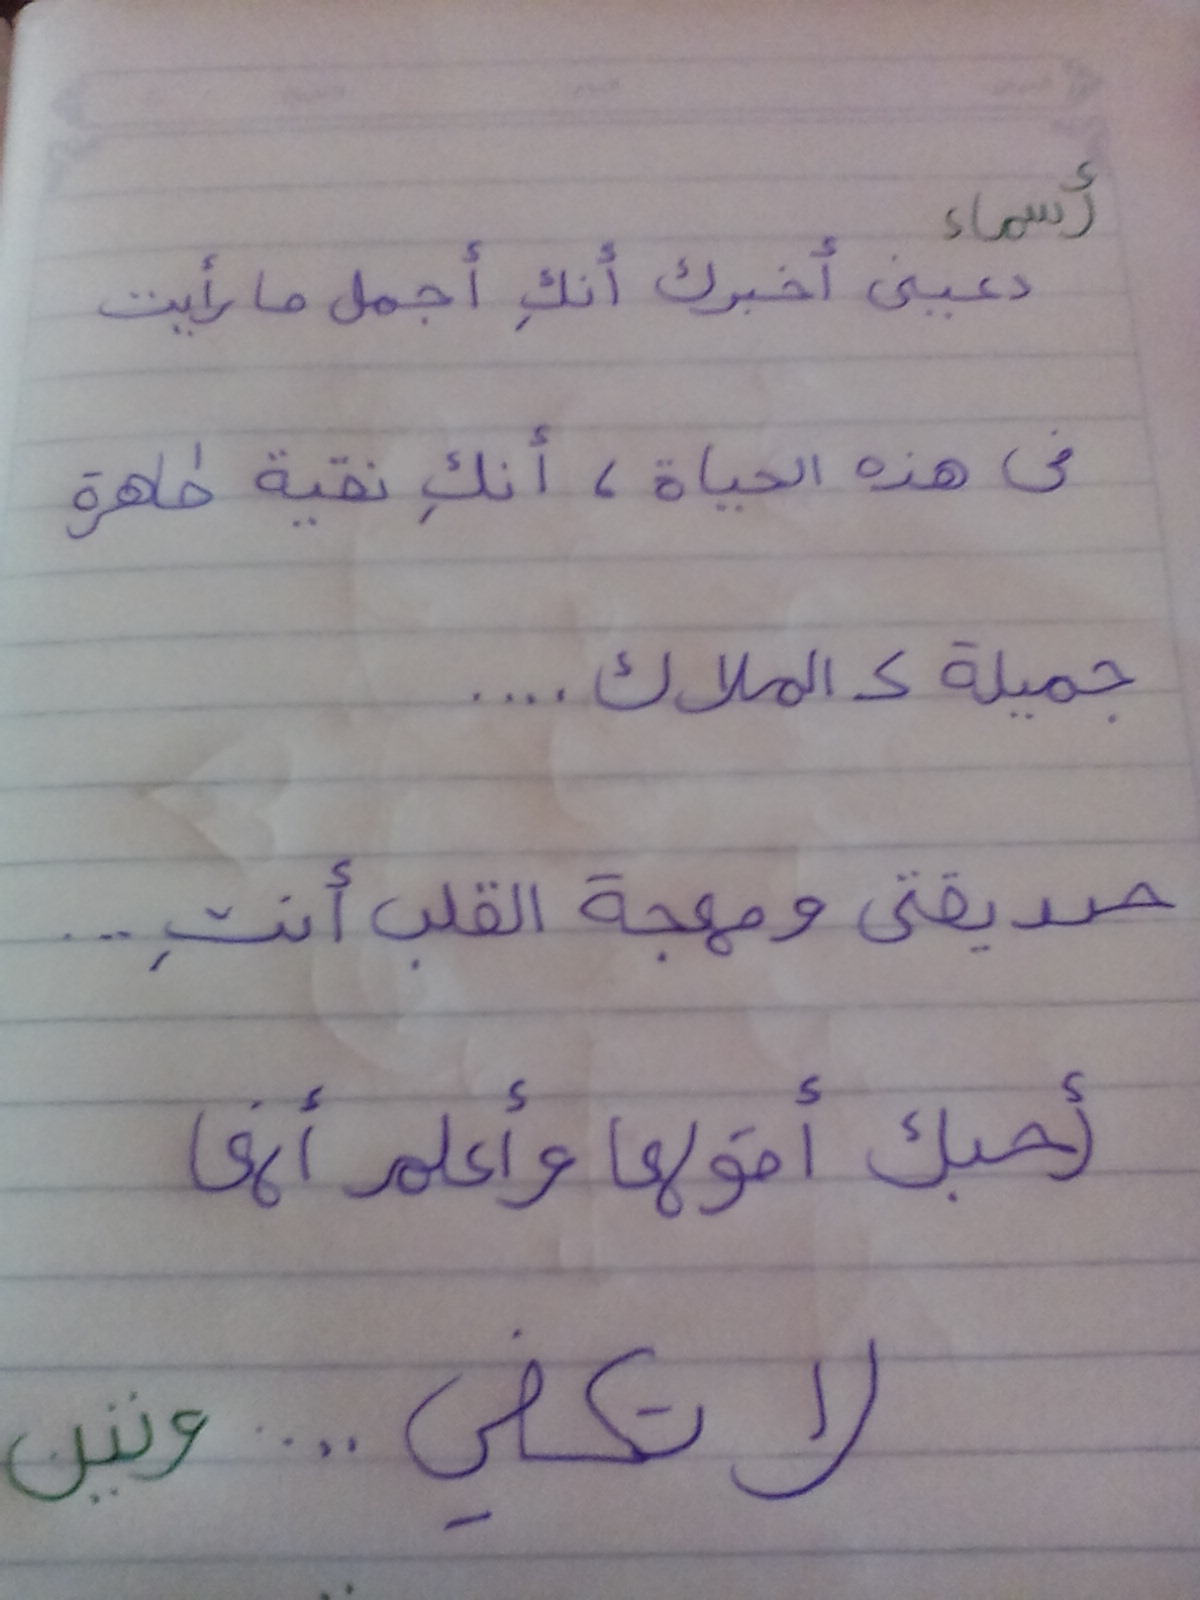 أسماء
دعيني أخبرك أنكِ أجمل ما رأيت
فى هذه الحياة ، أنكِ نقية طاهرة
جميلة ك الملاك ....
صديقتى ومهجة القلب أنتِ ...
أحبك أقولها وأعلم أنها
لا تكفي ....